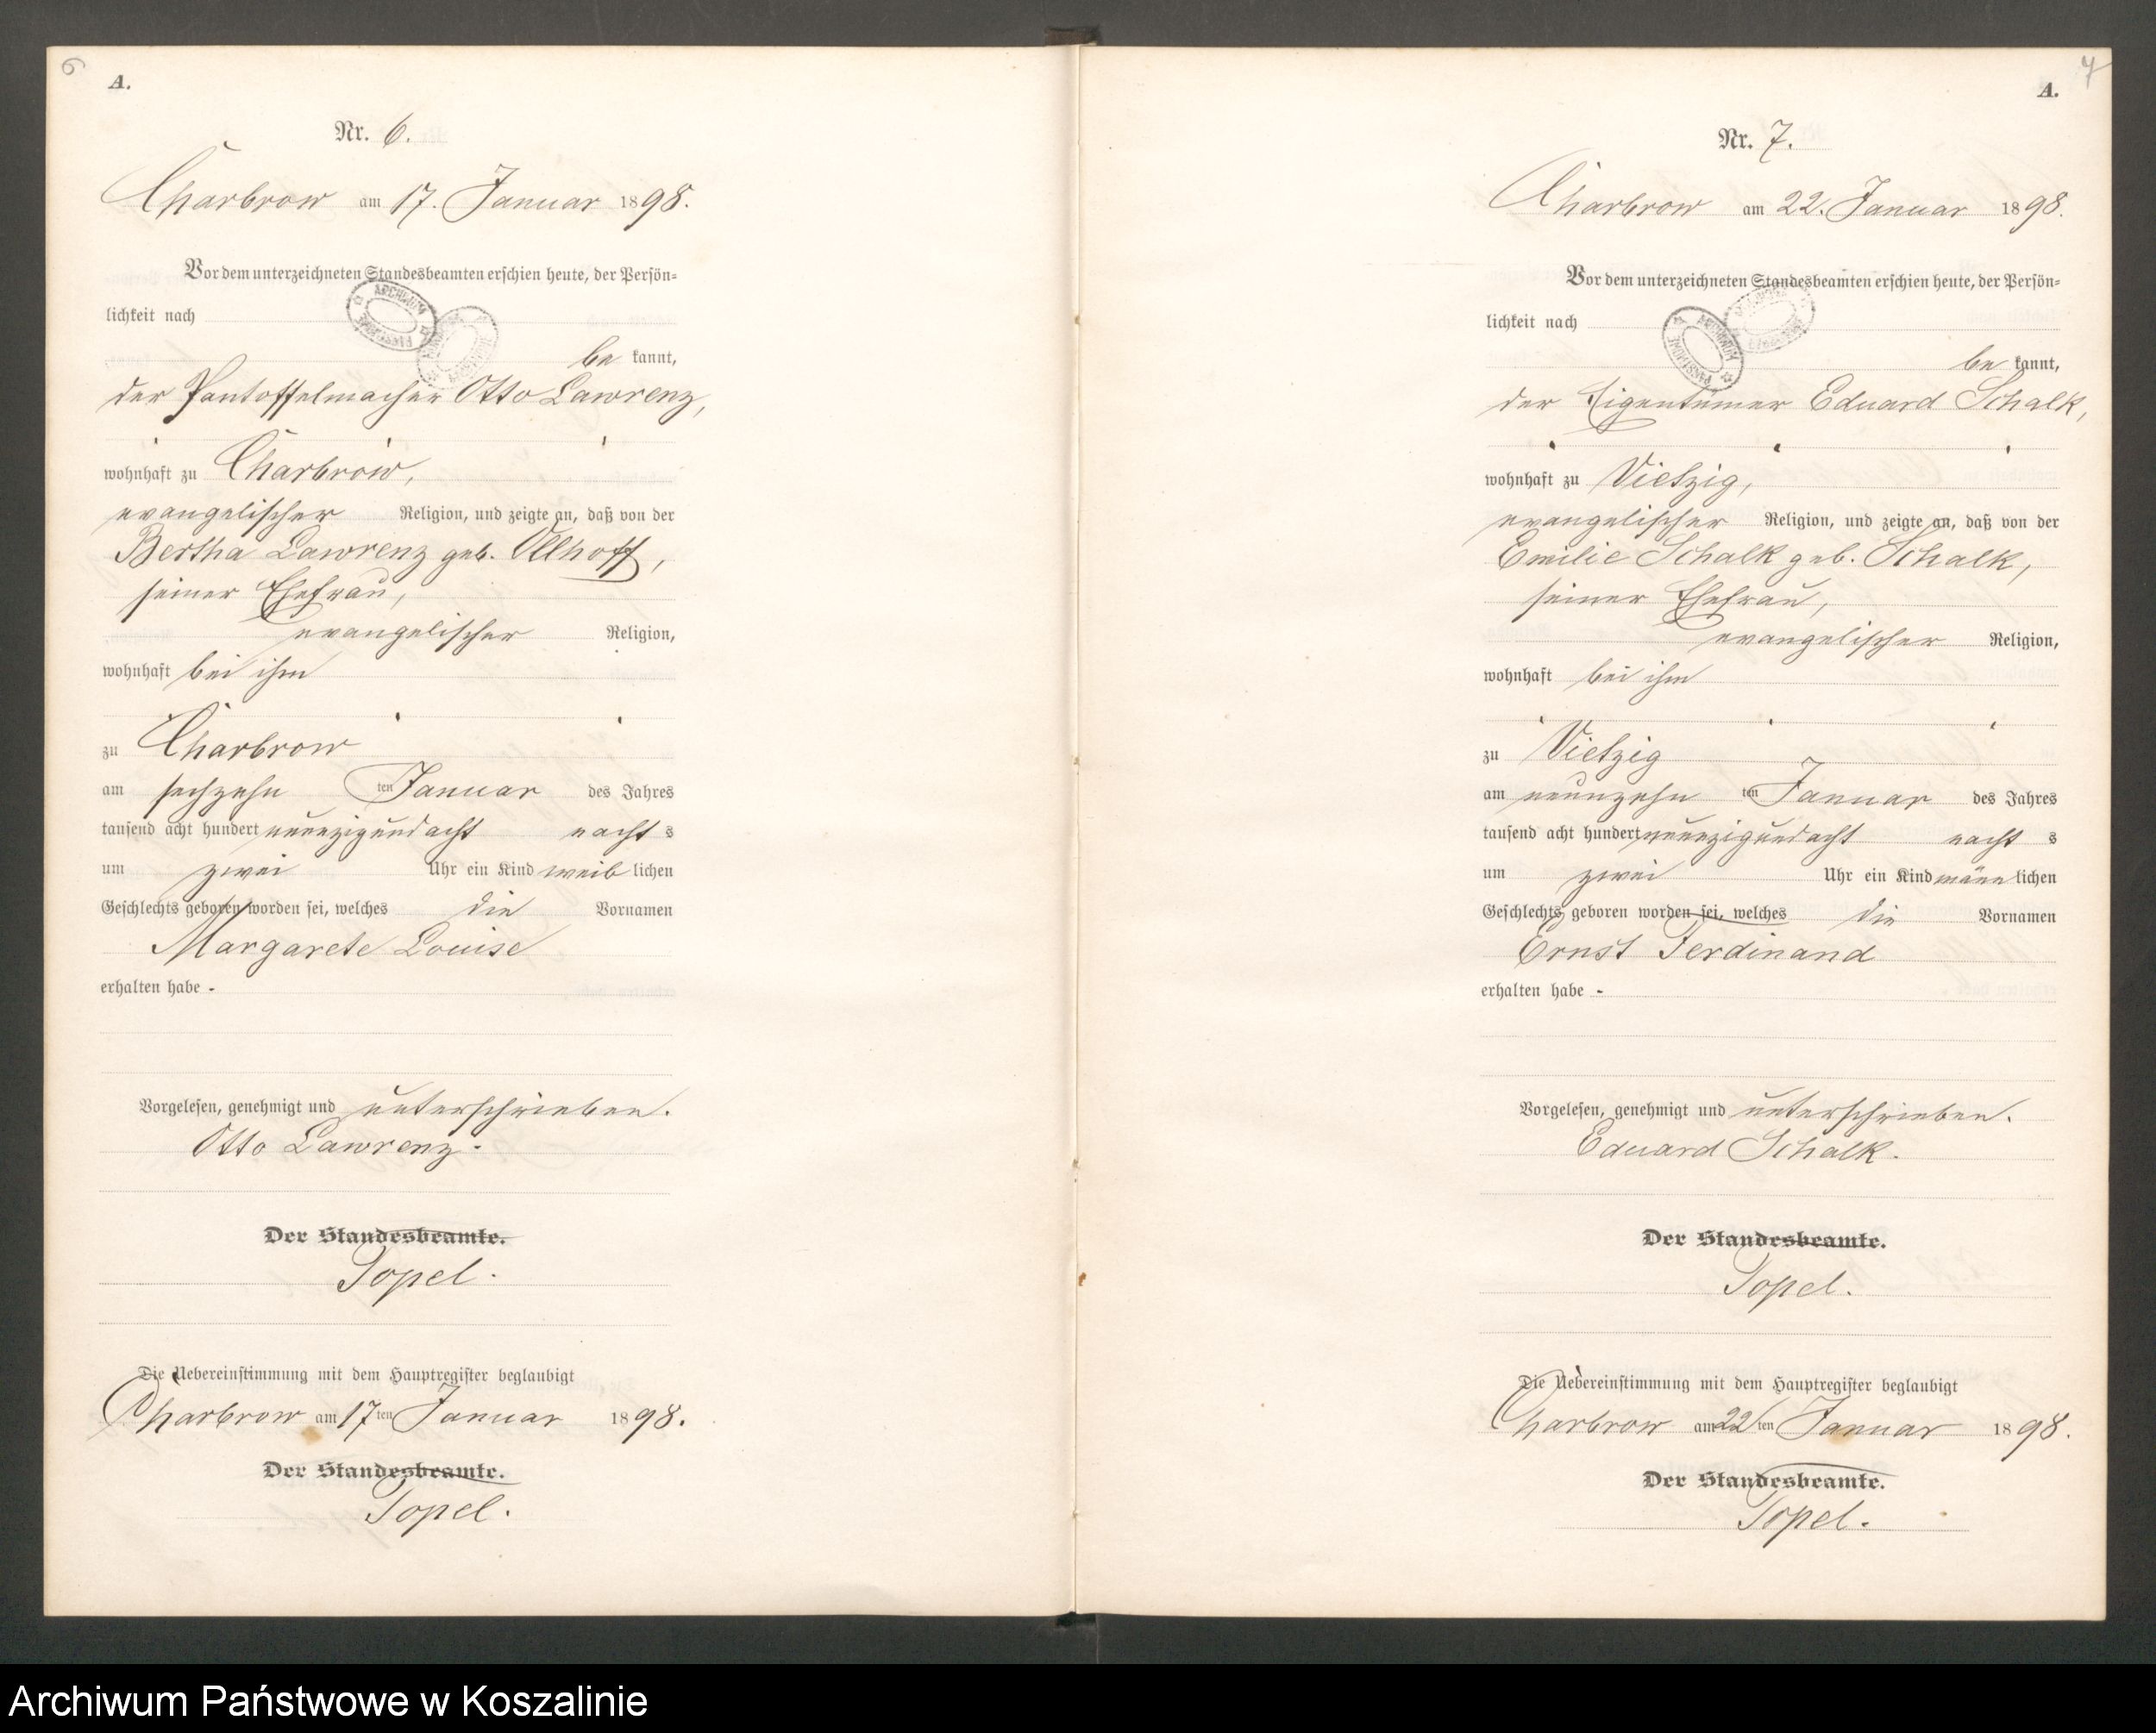 6
A.
Nr. 6.
Charbrow am 17. Januar 1898.
Vor dem unterzeichneten Standesbeamten erschien heute, der Persön-
lichkeit nach
be kannt,
der Pantoffelmacher Otto Lawrenz,
wohnhaft zu Charbrow,
evangelischer Religion, und zeigte an, daß von der
Bertha Lawrenz geb. Ollhoff,
seiner Ehefrau,
evangelischer Religion,
wohnhaft bei ihm
zu Charbrow
am sechzehn ten Januar des Jahres
tausend acht hundert neunzigundacht nacht s
um zwei Uhr ein Kind weib lichen
Geschlechts geboren worden sei, welches die Vornamen
Margarete Louise
erhalten habe -
Vorgelesen, genehmigt und unterschrieben.
Otto Lawrenz.
Der Standesbeamte.
Topel.
Die Uebereinstimmung mit dem Hauptregister beglaubigt
Charbrow am 17 ten Januar 1898.
Der Standesbeamte.
Topel.
7
A.
Nr. 7.
Charbrow am 22. Januar 1898.
Vor dem unterzeichneten Standesbeamten erschien heute, der Persön-
lichkeit nach
be kannt,
der Eigentümer Eduard Schalk,
wohnhaft zu Vietzig,
evangelischer Religion, und zeigte an, daß von der
Emilie Schalk geb. Schalk,
seiner Ehefrau,
evangelischer Religion,
wohnhaft bei ihm
zu Vietzig
am neunzehn ten Januar des Jahres
tausend acht hundert neunzigundacht nacht s
um zwei Uhr ein Kind männ lichen
Geschlechts geboren worden sei, welches die Vornamen
Ernst Ferdinand
erhalten habe -
Vorgelesen, genehmigt und unterschrieben.
Eduard Schalk.
Der Standesbeamte.
Topel.
Die Uebereinstimmung mit dem Hauptregister beglaubigt
Charbrow am 22 ten Januar 1898.
Der Standesbeamte.
Topel.
Archiwum Państwowe w Koszalinie